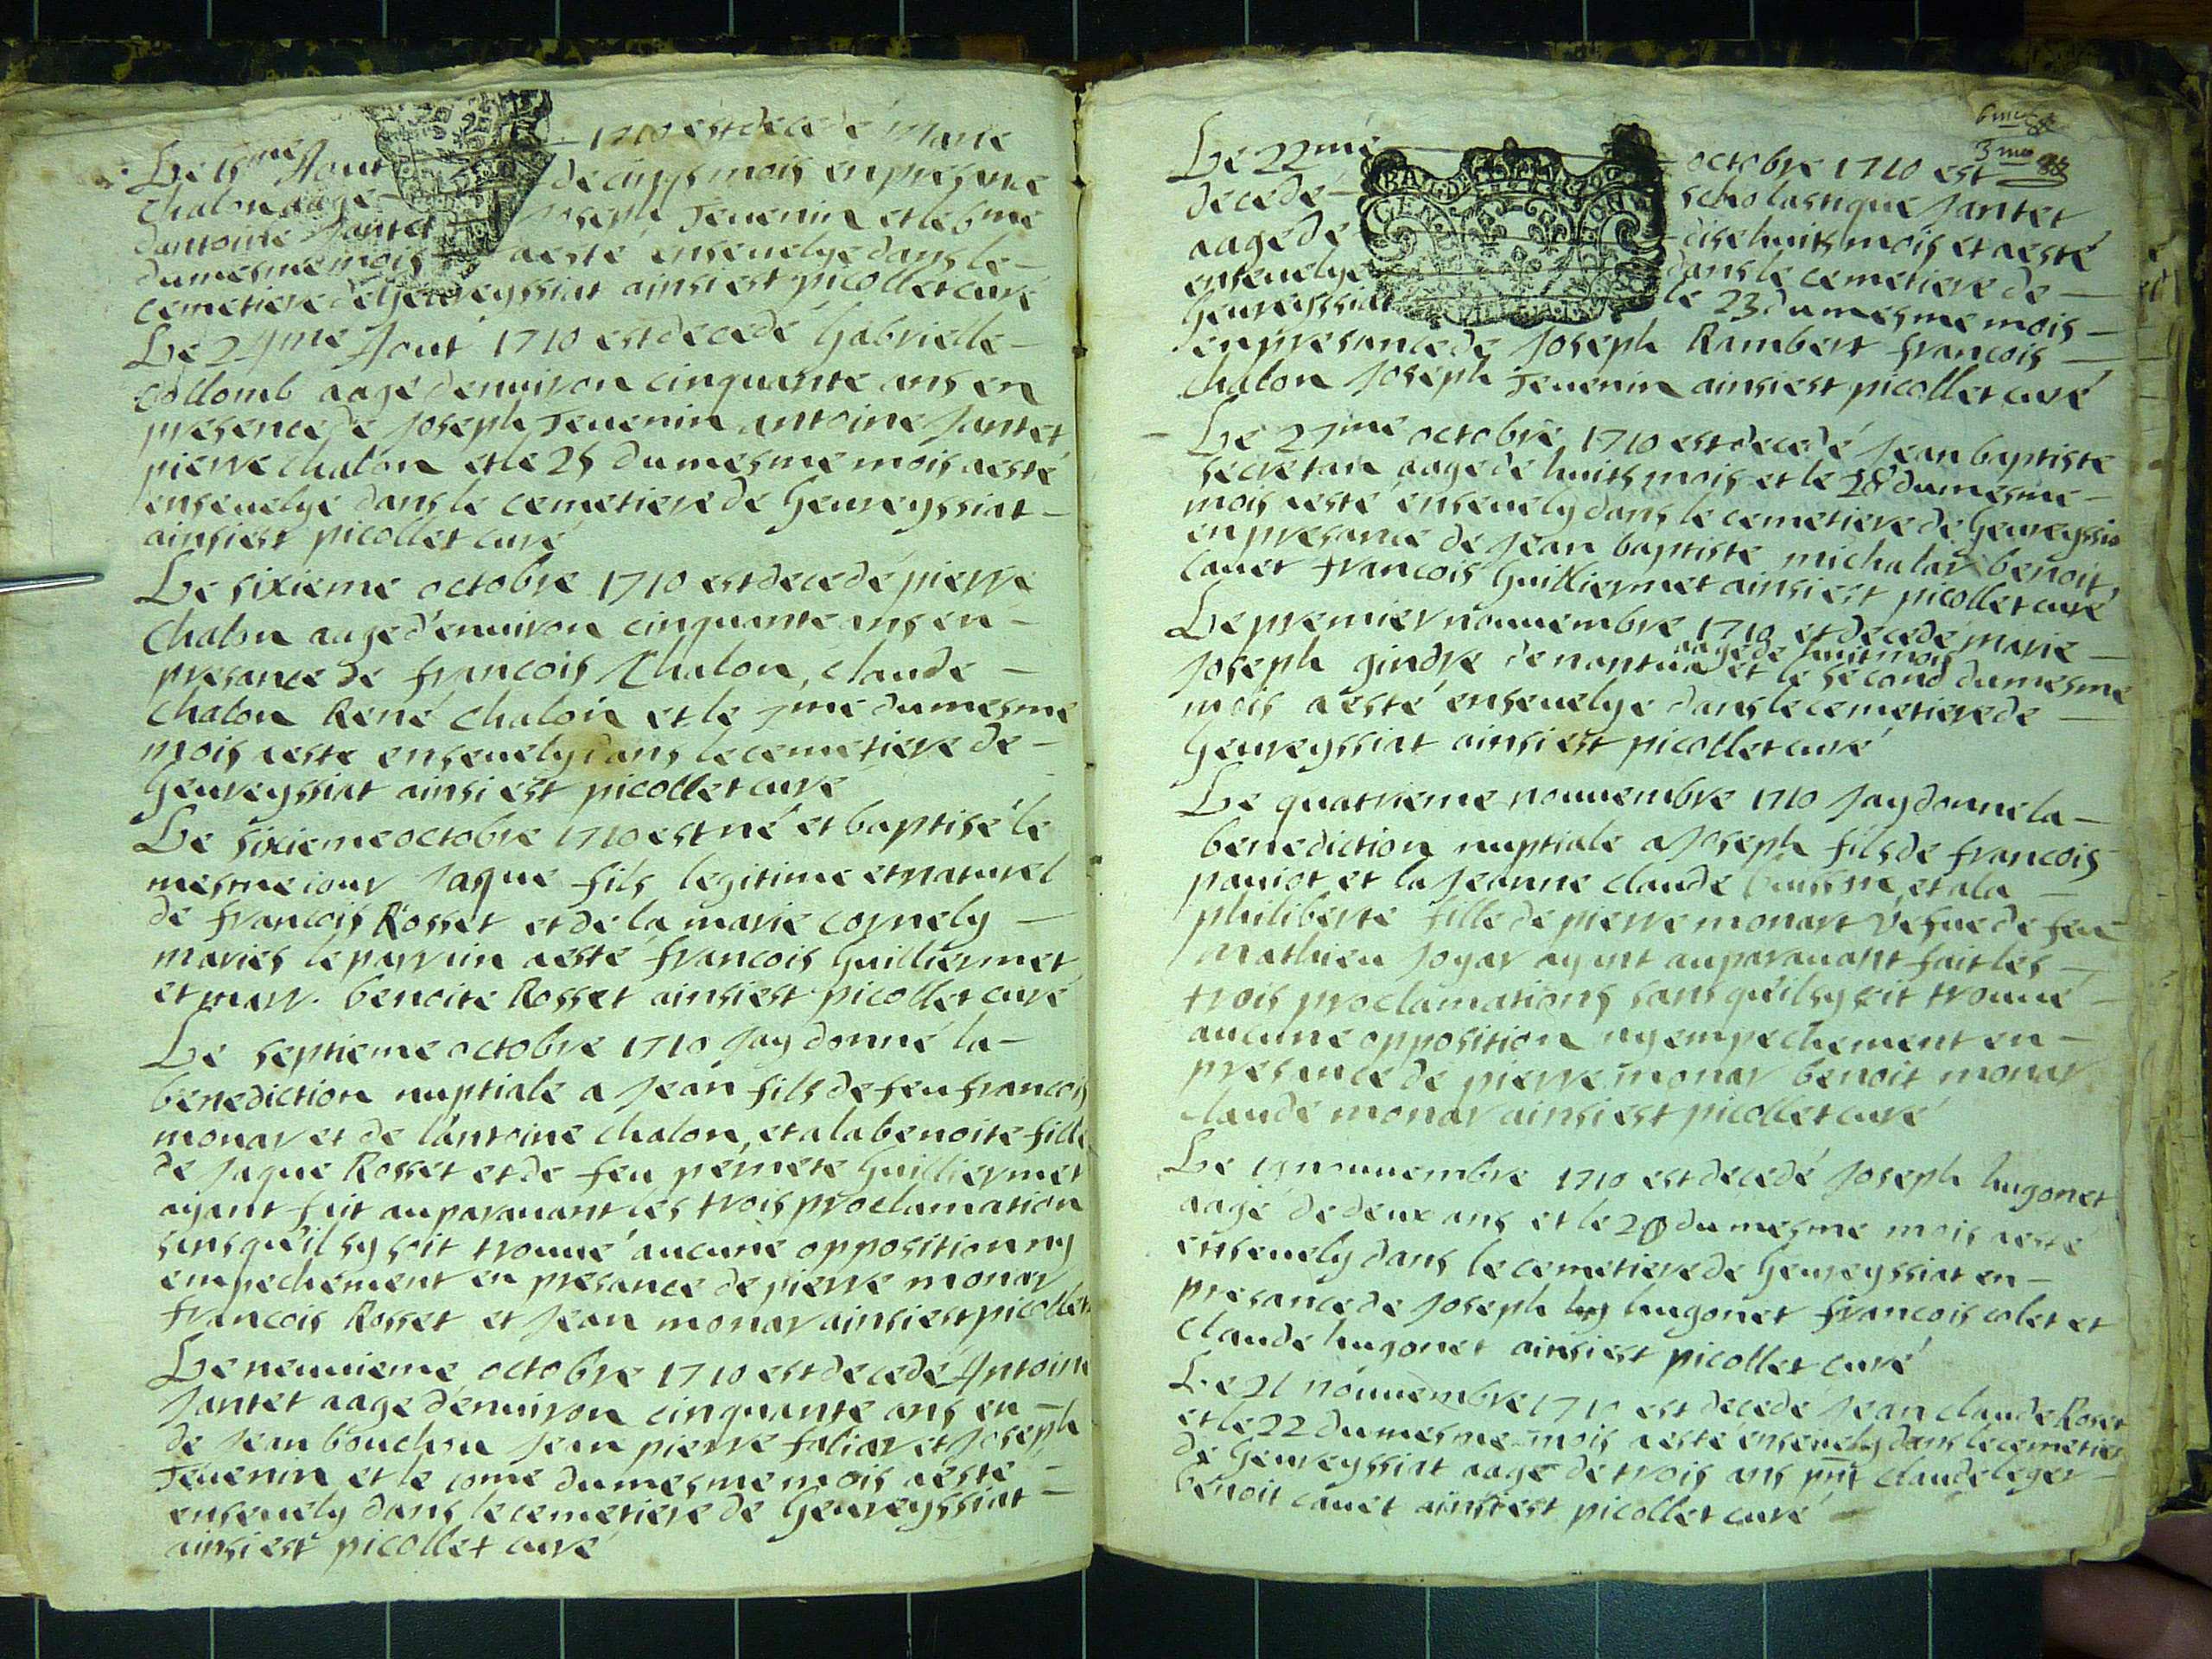 Le 5me Aout 1710 est decedé Marie
Chalon aagé de cinqs mois en presance
dantoine Jantet Joseph Tevenin et le 6me
du mesme mois a esté ensevelye dans le
cemetiere de Gevreyssiat ainsi est picollet curé
Le 24me Aout 1710 est decedé Gabrielle
Collomb aagé denuiron cinquante ans en
presence de Joseph Teuenin antoine Jantet
pierre Chalon et le 25 du mesme mois a esté
enseuelye dans le cemetiere de Geureyssiat
ainsi est picollet curé
Le sixieme octobre 1710 est decedé pierre
Chalon aage d'enuiron cinquante ans en
presance de francois Chalon, claude
Chalon René Chalon et le 7me du mesme
mois a esté enseuely dans le cemetiere de
Geureyssiat ainsi est picollet curé
Le sixieme octobre 1710 est né et baptisé le
mesme iour Jaque fils legitime et naturel
de francois Rosset et de la marie cornely
maries le parrain a esté francois Guilliermet
et marr. benoite Rosset ainsi est picollet curé
Le septieme octobre 1710 Jay donné la
benediction nuptiale a Jean fils de feu francois
monar et de lantoine Chalon, et a la benoite fille
de Jaque Rosset et de feu pernete Guilliermet
ayant fait auparauant les trois proclamation
sans qu'il sy soit trouué aucune opposition ny
empechement en presance de pierre monar
francois Rosset et Jean monar ainsi est picollet
Le neuuieme octobre 1710 est decedé Antoine
Jantet aage d'enuiron cinquante ans en
de Jean bouchon Jean pierre faliar et Joseph
Teuenin et le 10me du mesme mois a esté
enseuely dans le cemetiere de Geureyssiat
ainsi est picollet curé
6me
3me
Le 22me octobre 1710 est
decedé scholastique Jantet
aagé de dise huits mois et a esté
enseuelye dans le cemetiere de
Geureyssiat le 23 du mesme mois
en presance de Joseph Rambert francois
Chalon Joseph Teuenin ainsi est picollet curé
Le 27me octobre 1710 est decedé Jean baptiste
secretan aagé de huits mois et le 28 du mesme
mois a esté enseuely dans le cemetiere de Geureyssia
en presance de Jean baptiste michalar benoit
cauet francois Guilliermet ainsi est picollet curé
Le premier nouuembre 1710 est decedé marie
aagé de huit mois
Joseph gindre de nantua et le second du mesme
mois a esté enseuelye dans le cemetiere de
Geureyssiat ainsi est picollet curé
Le quatrieme nouuembre 1710 Jay donné la
benediction nuptiale a Joseph fils de francois
pauiot et la Jeanne claude et a la
philiberte fille de pierre monart vesue de feu
Mathieu Joyar ayant auparauant fait les
trois proclamations sans qu'il sy soit trouué
aucune opposition ny empechement en
presance de pierre monar benoit monar
claude monar ainsi est picollet curé
Le 19 nouuembre 1710 est decedé Joseph hugonet
aagé de deux ans et le 20 du mesme mois a esté
enseuely dans le cemetiere de Geureyssiat en
presance de Joseph hugonet francois colet et
Claude hugonet ainsi est picollet curé
Le 21 nouuembre 1710 est decedé Jean claude Roset
et le 22 du mesme mois a esté enseuely dans le cemetier
de Geureyssiat aagé de trois ans pnt claude leger
benoit cauet ainsi est picollet curé